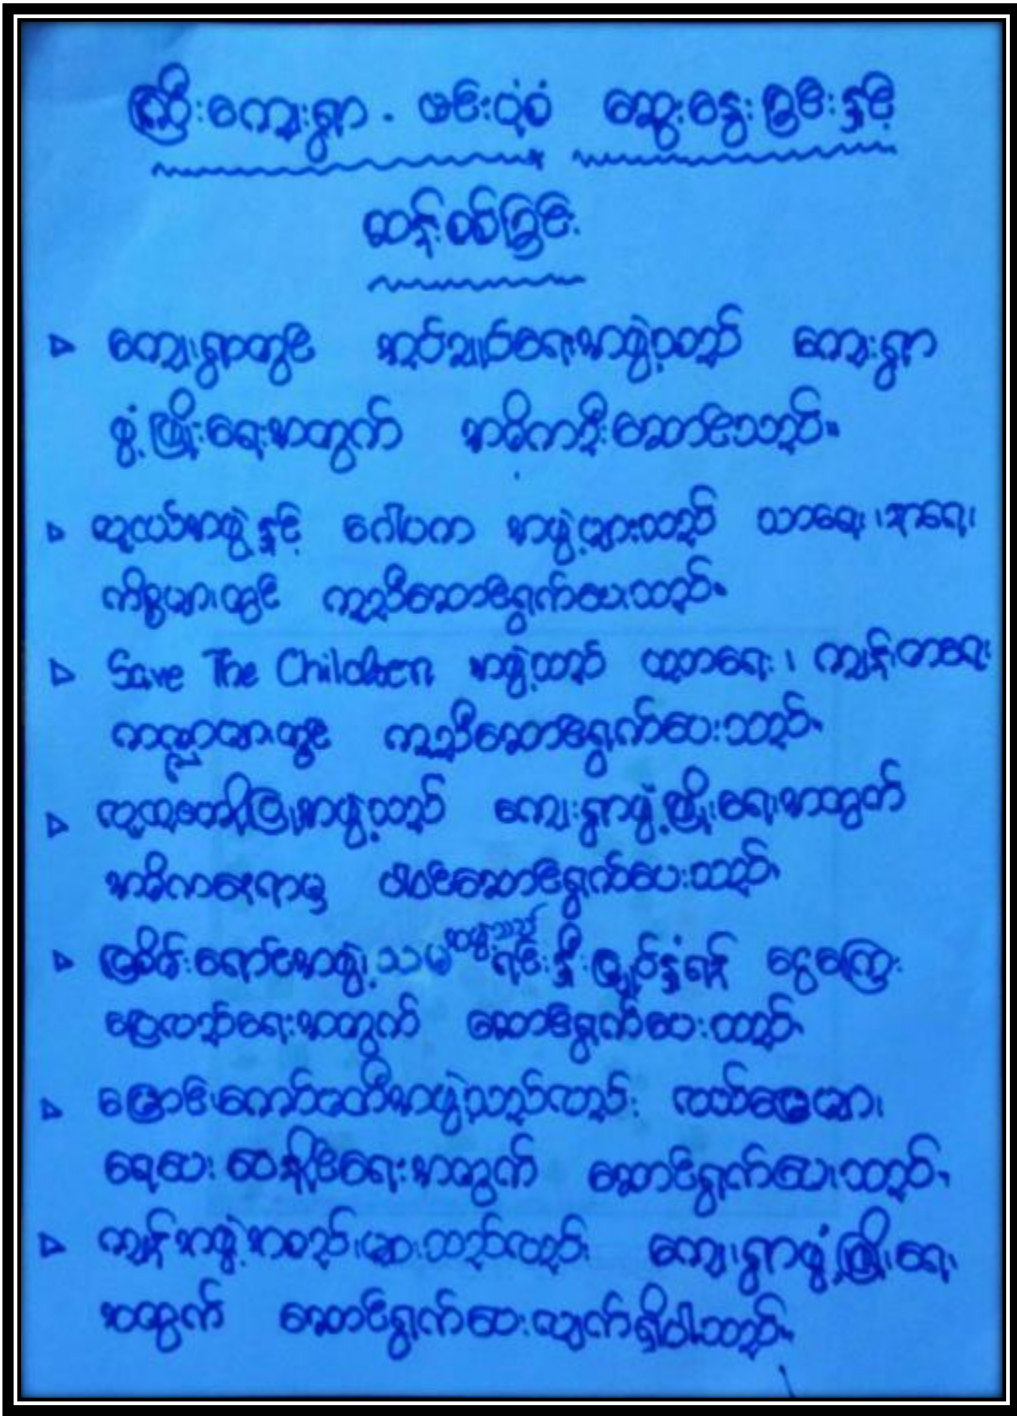 ကြီးကျေးရွာ . ဗင်းပုံစံ ဆွေးနွေးခြင်းနှင့်
ဆန်းစစ်ခြင်း
▷ ကျေးရွာတွင် အုပ်ချုပ်ရေးအဖွဲ့သည် ကျေးရွာ
ဖွံ့ဖြိုးရေးအတွက် အဓိကဦးဆောင်သည်။
▷ လူငယ်အဖွဲ့နှင့် ဂေါပက အဖွဲ့များသည် သာရေး၊ နာရေး၊
ကိစ္စများတွင် ကူညီဆောင်ရွက်ပေးသည်။
▷ Save The Children အဖွဲ့သည် ပညာရေး၊ ကျန်းမာရေး
ကဏ္ဍများတွင် ကူညီဆောင်ရွက်ပေးသည်။
▷ လူထုအကျိုးပြုအဖွဲ့သည် ကျေးရွာဖွံ့ဖြိုးရေးအတွက်
အဓိကနေရာမှ ပါဝင်ဆောင်ရွက်ပေးသည်။
▷ မြစိမ်းရောင်အဖွဲ့ သမ အဖွဲ့သည် ရင်းနှီးမြှုပ်နှံရန် ငွေကြေး
ချေးယူရေးအတွက် ဆောင်ရွက်ပေးသည်။
▷ မြောင်းကော်မတီအဖွဲ့သည်လည်း လယ်မြေများ
ရေပေး ဆောင်ရွက်ပေးသည်။
▷ ကျန်အဖွဲ့အစည်းများသည်လည်း ကျေးရွာဖွံ့ဖြိုးရေး
အတွက် ဆောင်ရွက်ပေးလျက်ရှိပါသည်။